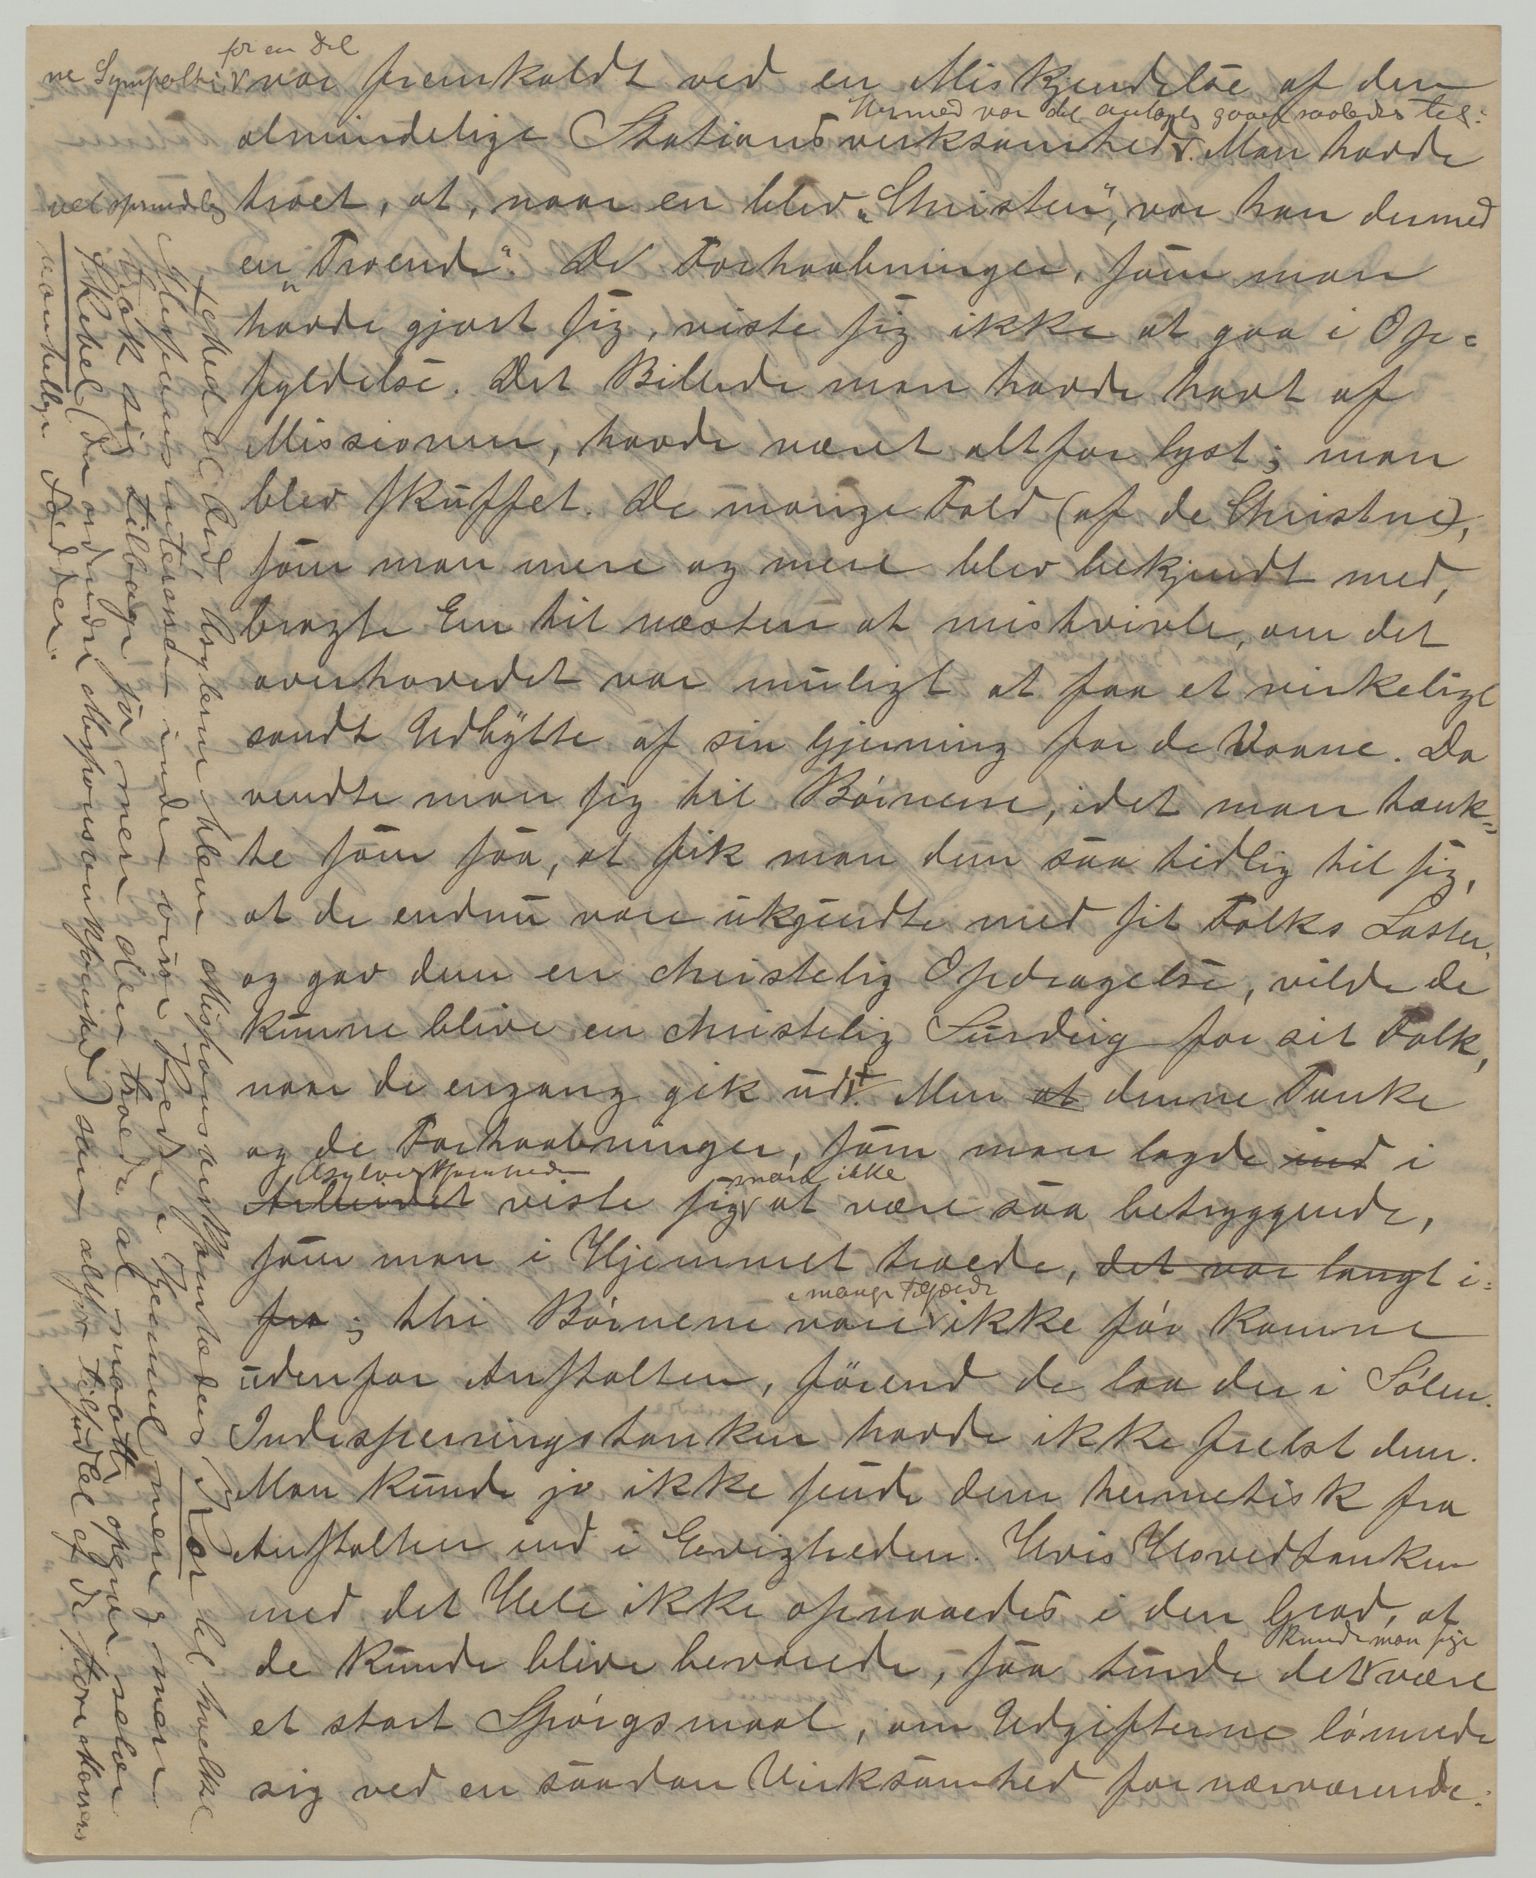 for en Del
ne Sympathi var fremkaldt ved en Miskjendelse af den
Hermed var det gaaet saaledes til:
almindelige Stationsvirksomhed. Man havde
troet, at, naar en blev "Christen", var han dermed
en "Troende". De Forhaabninger, som man
havde gjort sig, viste sig ikke at gaa i Op-
fyldelse. Det Billede man havde havt af
Missionen, havde været altfor lyst; man
blev skuffet. De mange Fald (af de Christne),
som man mere og mere blev bekjendt med,
bragte En til næsten at mistvivle, om det
overhovedet var muligt at faa et virkeligt
sandt Udbytte af sin Gjerning for de Voxne. Da
vendte man sig til Börnene, idet man tænk-
te som saa, at fik man dem saa tidlig til sig,
at de endnu vare ukjendte med sit Folks Laster,
og gav dem en christelig Opdragelse, vilde de
kunne blive en christelig Surdeig for sit Folk,
naar de engang gik ud. Men at denne Tanke
og de Forhaabninger, som man lagde ind i
Asylvirksomheden snart ikke
Arbeidet viste sig at være saa betryggende,
som man i Hjemmet troede, det var langt i-
i mange Tilfælde
fra; thi Börnene vare ikke för komne
udenfor Anstalten, förend de laa der i Sölen.
Indesperringstanken havde ikke frelst dem.
Man kunde jo ikke sende dem hermetisk fra
Anstalten ind i Evigheden. Hvis Hovedtanken
med det Hele ikke opnaaedes i den Grad, at
kunde man sige
de kunde blive bevarede, saa turde det være
et stort Spörgsmaal, om Udgifterne lönnede
sig ved en saadan Virksomhed for nærværende.
oprindelig
Asylerne blev Missionsvirksomhedens Kor til hvilke
Missionsinteressen inden visse Kredse i Hjemmet mer og mer
trak sig tilbage, jo mer den troede at maatte opgive selve
Skibet (den ordinære Missionsvirksomhed) som altfor tilsölet af de store Massers
vanhellige Födder.